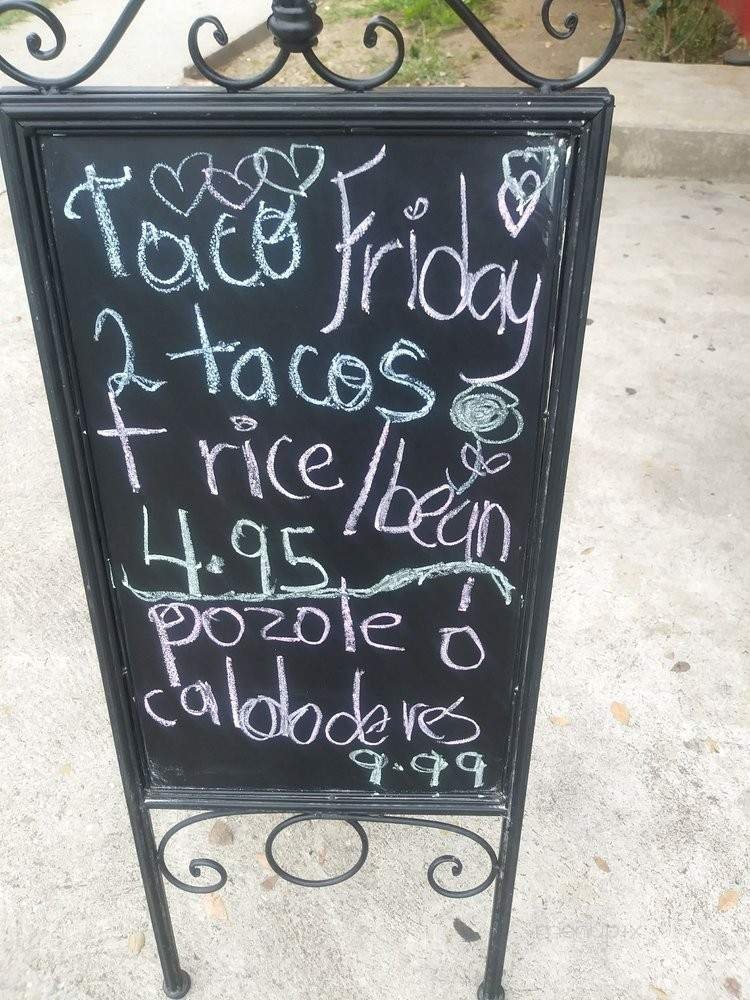 Taco Friday
2 tacos
+ rice/bean
4.95
pozole ó
caldo de res
9.99